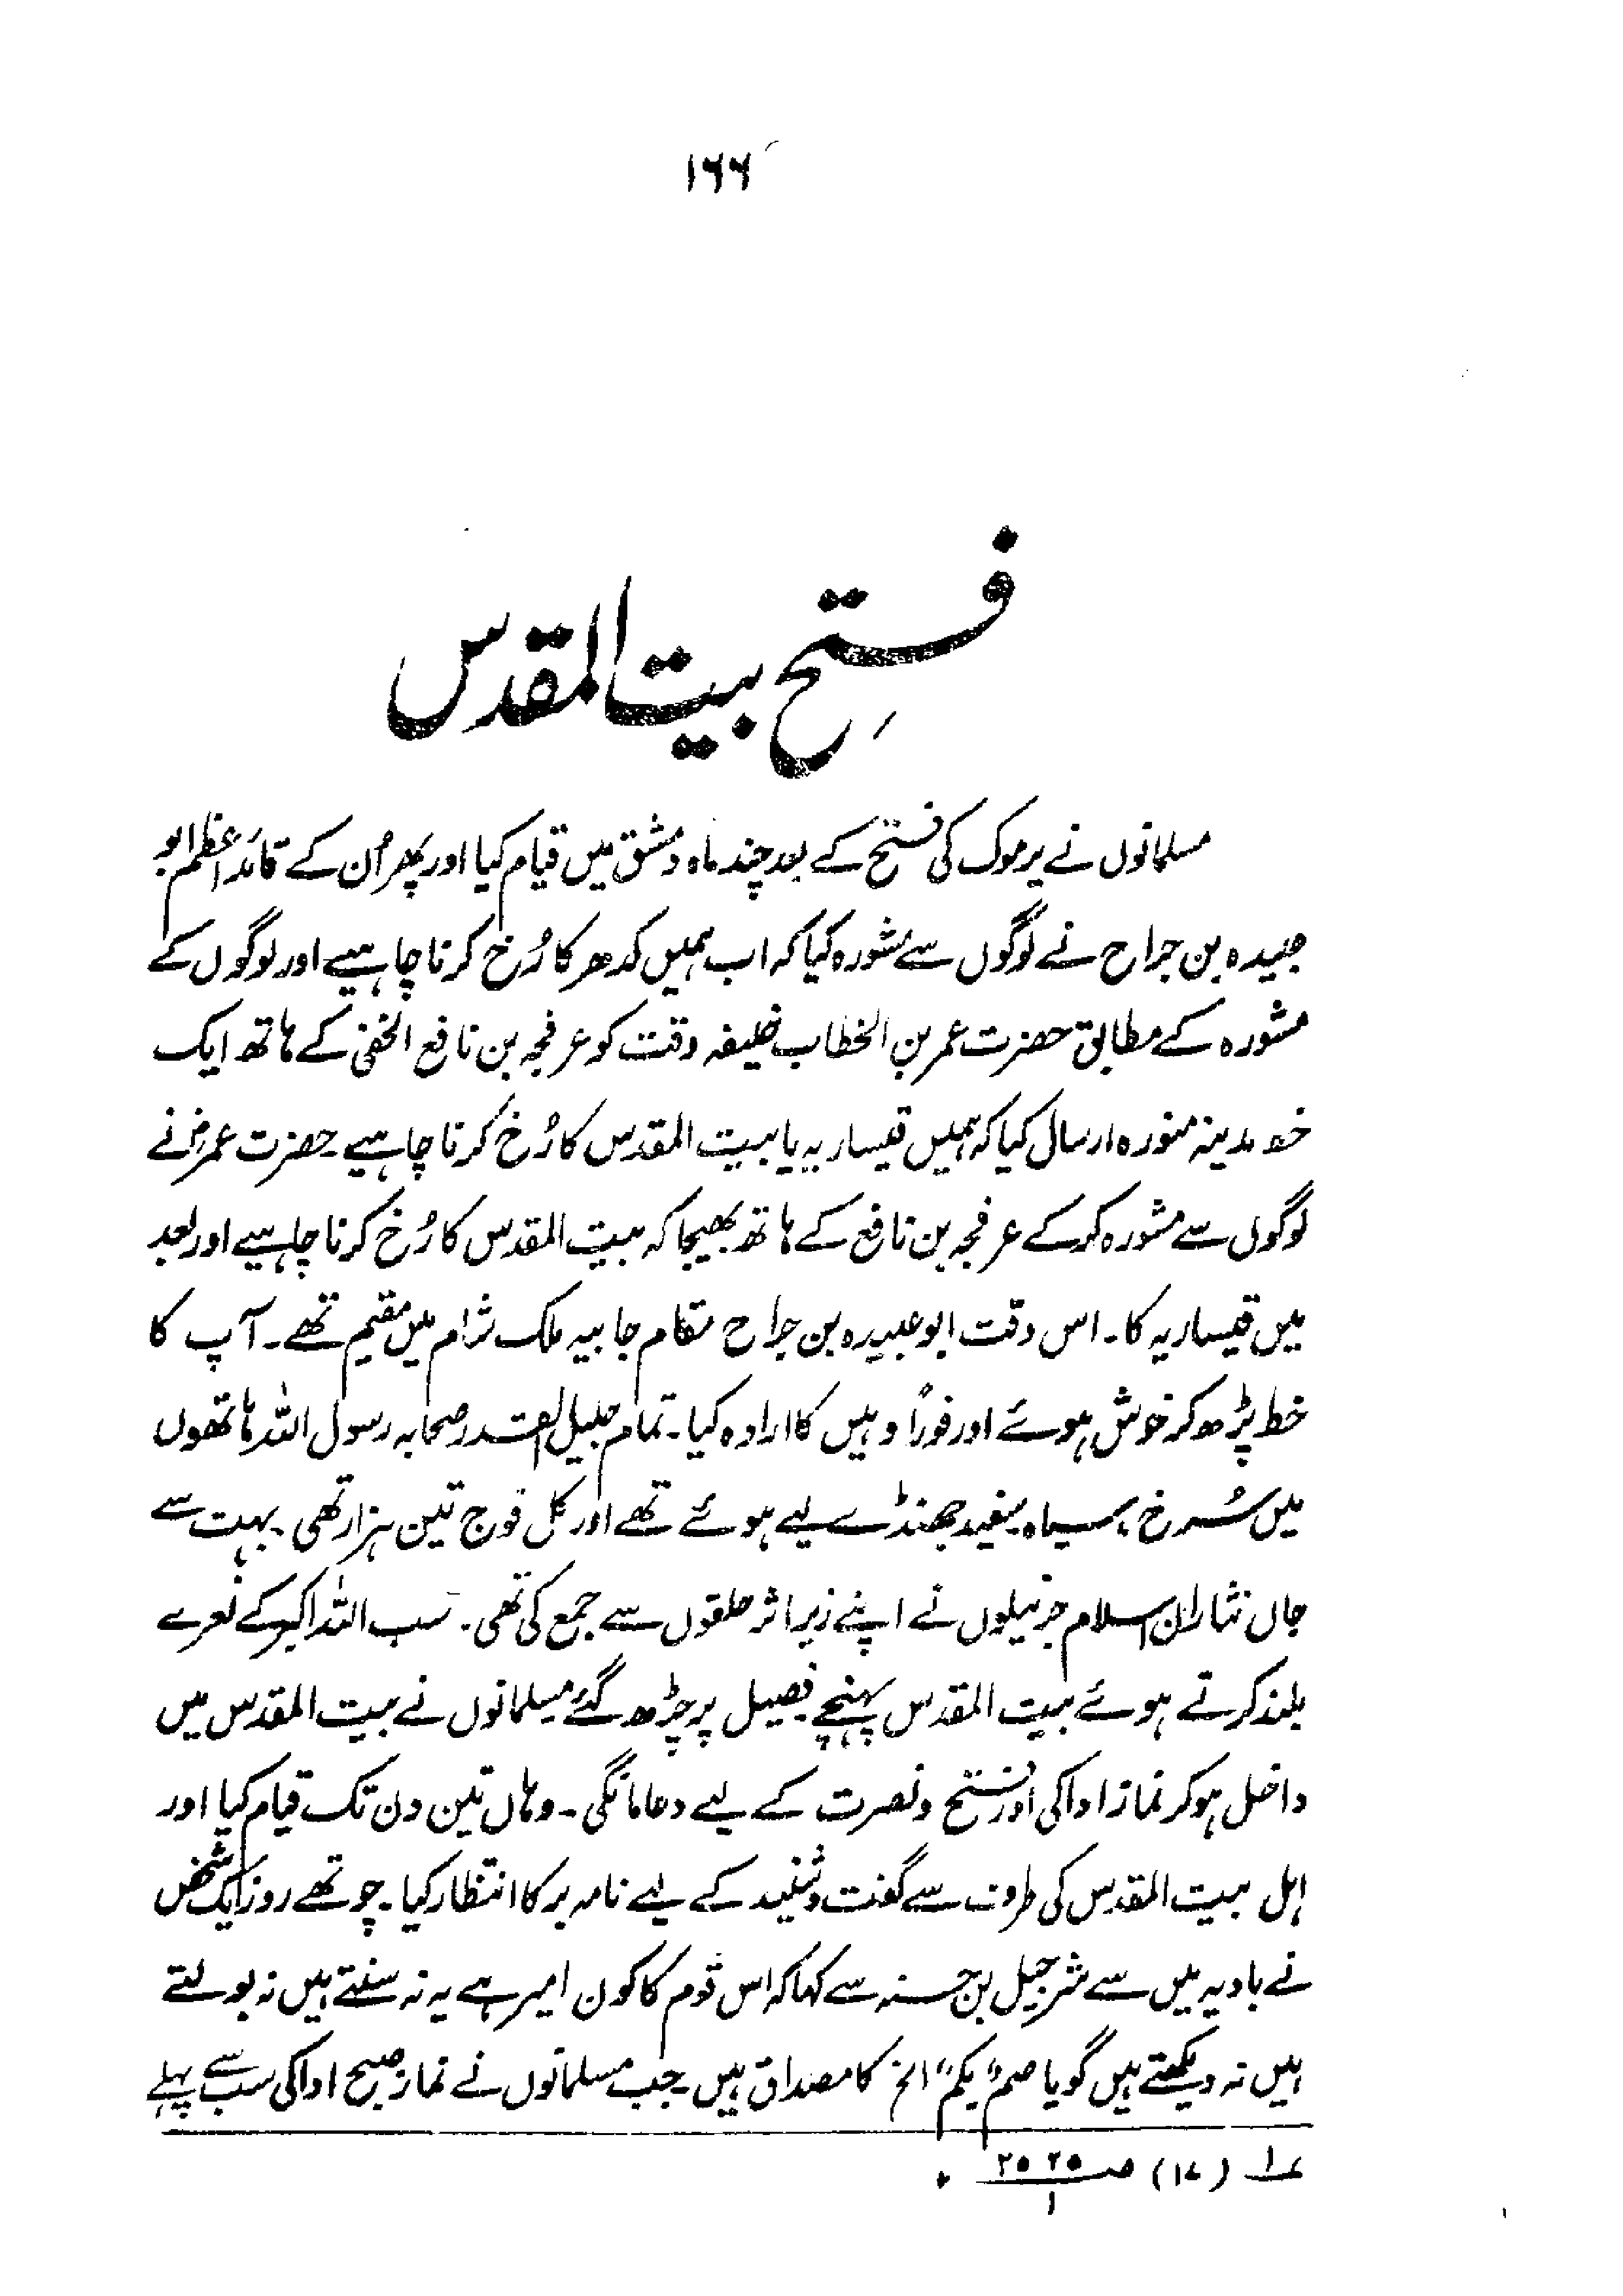 ۱۶۶
فتحِ بیت المقدس
مسلمانوں نے یرموک کی فتح کے بعد چند ماہ دمشق میں قیام کیا اور پھر اُن کے قائد اعظم ابو
عبیدہ بن جراح نے لوگوں سے مشورہ کیا کہ اب ہمیں کدھر کا رُخ کرنا چاہیے اور لوگوں کے
مشورہ کے مطابق حضرت عمر بن الخطاب خلیفہ وقت کو عرفجہ بن نافع الخفی کے ہاتھ ایک
خط مدینہ منورہ ارسال کیا کہ ہمیں قیساریہ یا بیت المقدس کا رُخ کرنا چاہیے۔ حضرت عمرؓ نے
لوگوں سے مشورہ کر کے عرفجہ بن نافع کے ہاتھ بھیجا کہ بیت المقدس کا رُخ کرنا چاہیے اور بعد
میں قیساریہ کا۔ اس وقت ابو عبیدہ بن جراح مقام جابیہ ملک شام میں مقیم تھے۔ آپ کا
خط پڑھ کر خوش ہوئے اور فوراً وہیں کا ارادہ کیا۔ تمام جلیل القدر صحابہ رسول اللہ ہاتھوں
میں سُرخ، سیاہ، سفید جھنڈے لیے ہوئے تھے اور کل فوج تین ہزار تھی۔ بہت سے
جاں نثاران اسلام جرنیلوں نے اپنے زیر اثر حلقوں سے جمع کی تھی۔ سب اللہ اکبر کے نعرے
بلند کرتے ہوئے بیت المقدس پہنچے فصیل پر چڑھ گئے مسلمانوں نے بیت المقدس میں
داخل ہو کر نماز ادا کی اور فتح و نصرت کے لیے دعا مانگی۔ وہاں تین دن تک قیام کیا اور
اہل بیت المقدس کی طرف سے گفت و شنید کے لیے نامہ بر کا انتظار کیا۔ چوتھے روز ایک شخص
نے بادیہ میں سے شرجیل بن حسنہ سے کہا کہ اس قوم کا کون امیر ہے یہ نہ سنتے ہیں نہ بولتے
ہیں نہ دیکھتے ہیں گویا صم "بکم" الخ کا مصداق ہیں۔ جب مسلمانوں نے نماز صبح ادا کی سب سے پہلے
۱ (۱۷) ص ۲۵ ۲۵ / ۱